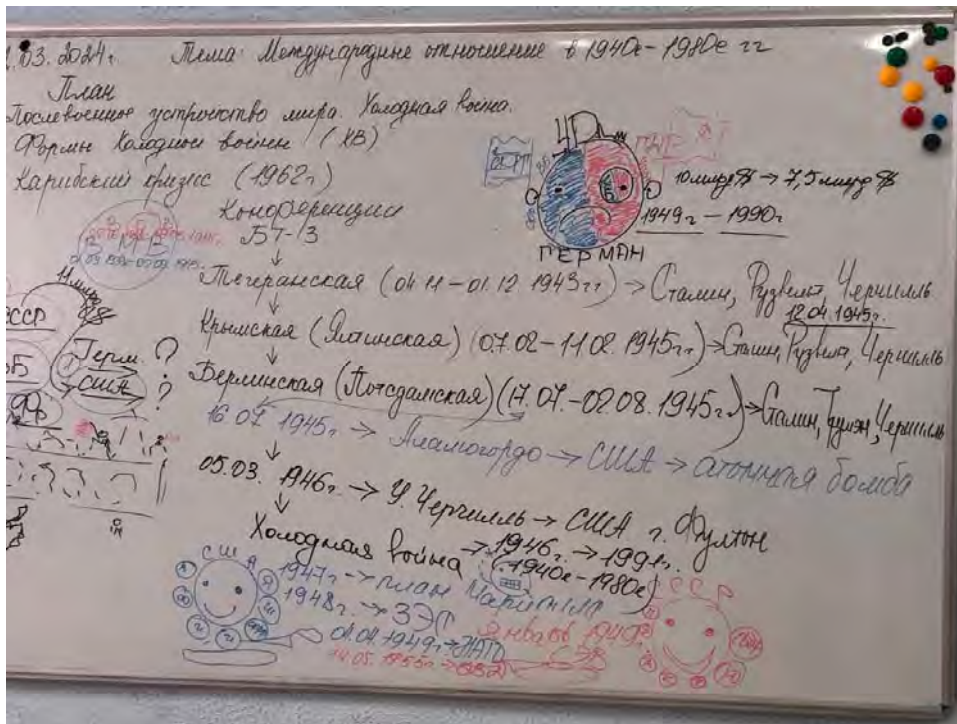 .03. 2024г. Тема: Международные отношение в 1940е - 1980е гг
План
Послевоенное устройство мира. Холодная война.
Формы Холодной войны (ХВ)
Карибский кризис (1962г)
10 млрд $ → 7,5 млрд $
1949г - 1990г
ГЕРМАН
Конференции
БТ-3
Тегеранская (04.11 - 01.12 1943гг) → Сталин, Рузвельт, Черчилль
12.04.1945г.
Крымская (Ялтинская) (07.02 - 11.02. 1945гг) → Сталин, Рузвельт, Черчилль
Берлинская (Потсдамская) (17.07. - 02.08. 1945г.) → Сталин, Трумэн, Черчилль
16.07 1945г → Аламогордо → США → атомная бомба
05.03. 1946г. → У. Черчилль → США г. Фултон
Холодная война → 1946г. → 1991г.
(1940е - 1980е)
СССР
Герм. ?
США ?
США
1947г → план Маршалла
1948г. → ЗЭС
04.04.1949г → НАТО
Январь 1949г
14.05.1955г → ОВД
СССР